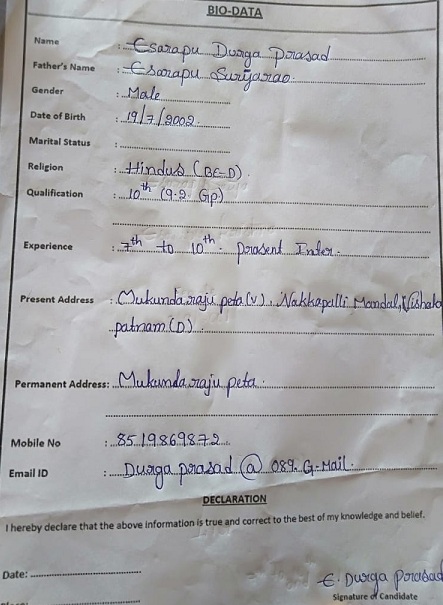 BIO-DATA
Name : Esarapu Durga Prasad
Father's Name : Esarapu Suryarao
Gender : Male
Date of Birth : 19/7/2002
Marital Status :
Religion : Hindus (BC-D)
Qualification : 10th (9.2 Gp)
Experience : 7th to 10th prasent Inter.
Present Address : Mukunda raju peta (v), Nakkapalli Mandal, Vishaka
patnam (D)
Permanent Address: Mukunda raju peta.
Mobile No : 8519869872
Email ID : Durga prasad @ 089. G-Mail.
DECLARATION
I hereby declare that the above information is true and correct to the best of my knowledge and belief.
Date:
E. Durga Porasad
Signature of Candidate